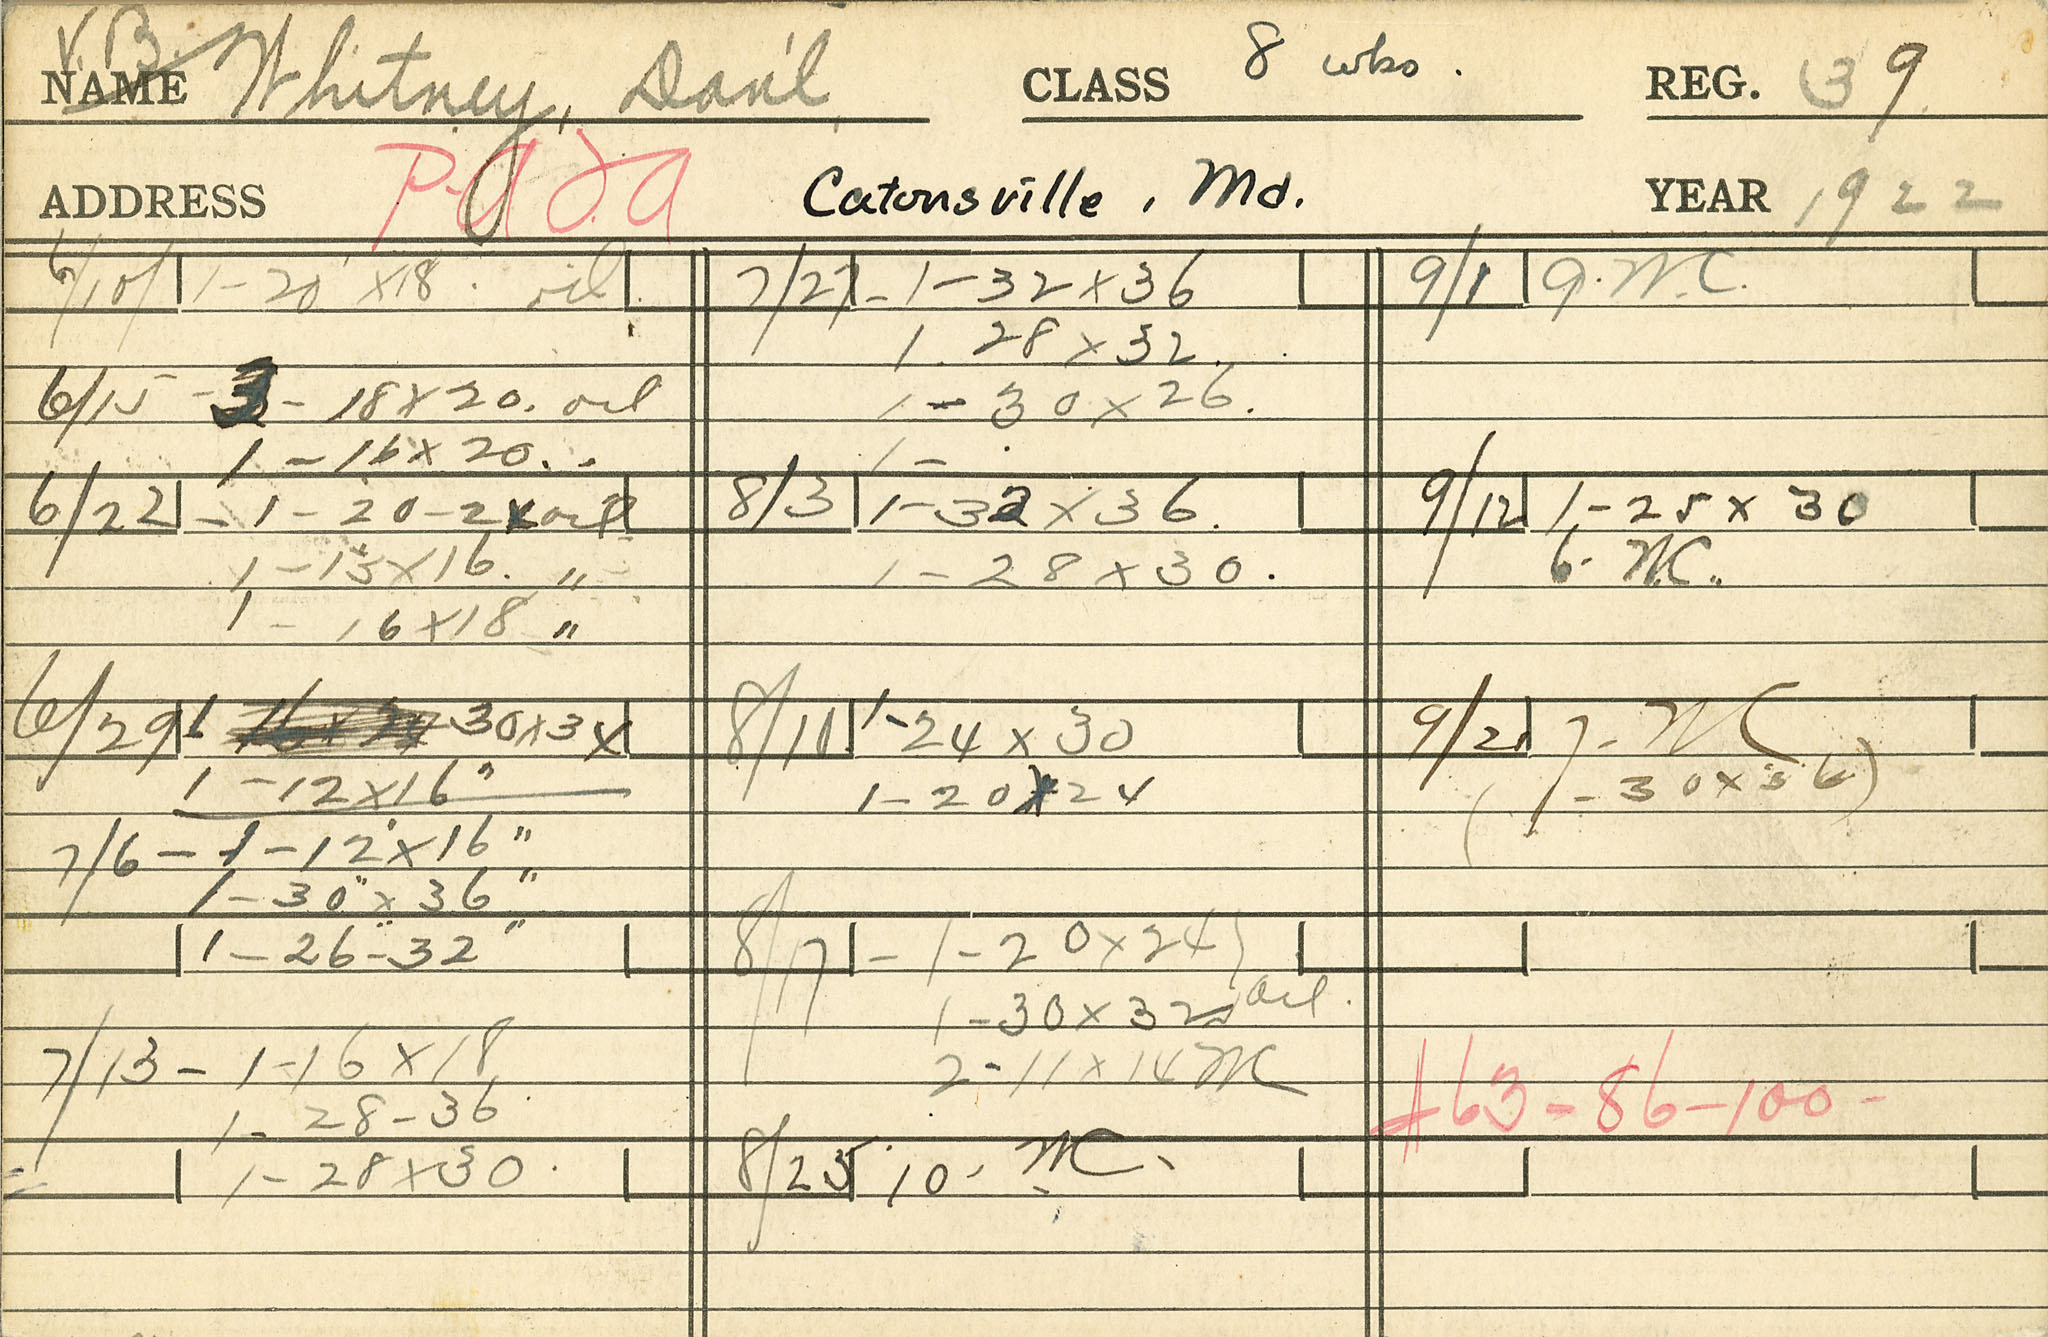 V.B.
NAME Whitney, Dan'l
CLASS 8 wks.
REG. 39
ADDRESS P.A.F.A
Catonsville, Md.
YEAR 1922
6/10/ 1-20 x18. oil.
6/15 - 3 - 18x20. oil
1 - 16x20. "
6/22 - 1 - 20-24 oil
1 - 13x16. "
1 - 16x18 "
6/29 1 30x34
1 - 12x16"
7/6 - 1 - 12"x16"
1 - 30"x36"
1 - 26"-32"
7/13 - 1-16x18
1- 28-36.
1- 28x30.
7/27 - 1 - 32x36
1. 28x32.
1 - 30x26.
1 -
8/3 1-32x36.
1 - 28x30.
8/10 1-24x30
1-20x24
8/17 - 1-20x24 }
1-30x32 oil.
2-11x14 WC
8/25 10. WC.
9/1 9. W.C.
9/12 1-25x30
6. W.C.
9/21 7. WC
(1-30x36)
#63-86-100-